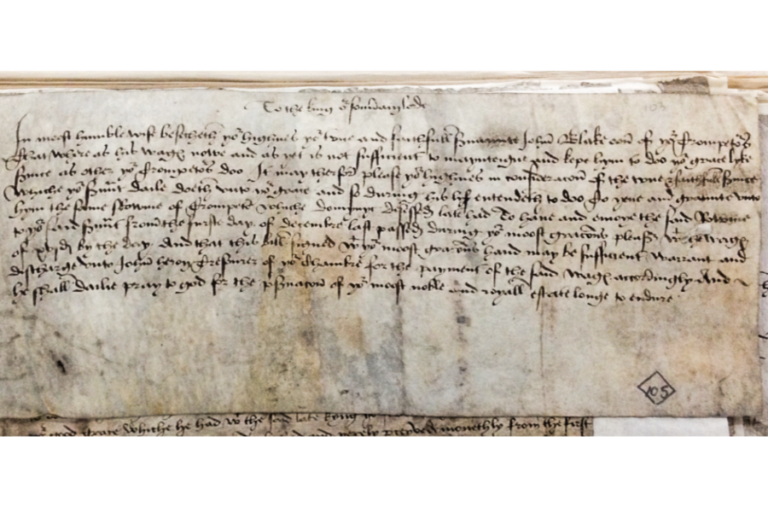 To the king oͬ souv̄aigne lorde
In moost humble wise besecheth yoͬ highnes yoͬ true and faithfull s̄vaunte John Blake oon of yoͬ Trompetṡ
That where as his wagẽ nowe and as yet is not sufficient to maynteigne and kepe hym to doo yoͬ grace lyke
s̄vice as other yoͬ trompetṡ doo It may therfor please yoͬ highnes in consideraco͠n of the true & faithfull s̄vice
whiche yoͬ s̄vnt dailie doeth unto yoͬ grace and so during his lyf entendeth to doo to yeue and graunte unto
hym the same Rowme of Trompete whiche domynyc decessed late had To haue and enioye the said Rowme
to yoͬ said s̄vnt from the furste day of decembre last passed during yoͬ moost gracious pleasͬ wͭ the wagẽ
of xvjd by the day And that this bill signed wͭ yoͬ moost gracious hand may be sufficient warrant and
discharge unto John heron Tresurer of yoͬ Chambre for the payment of the said wagẽ accordingly And
he shall dailie pray to god for the p̄s̄vacon of yoͬ moost noble and royall estate longe to endure
105
yoͬ good grace whiche he had wͭ the said late kyng
monethly from the first